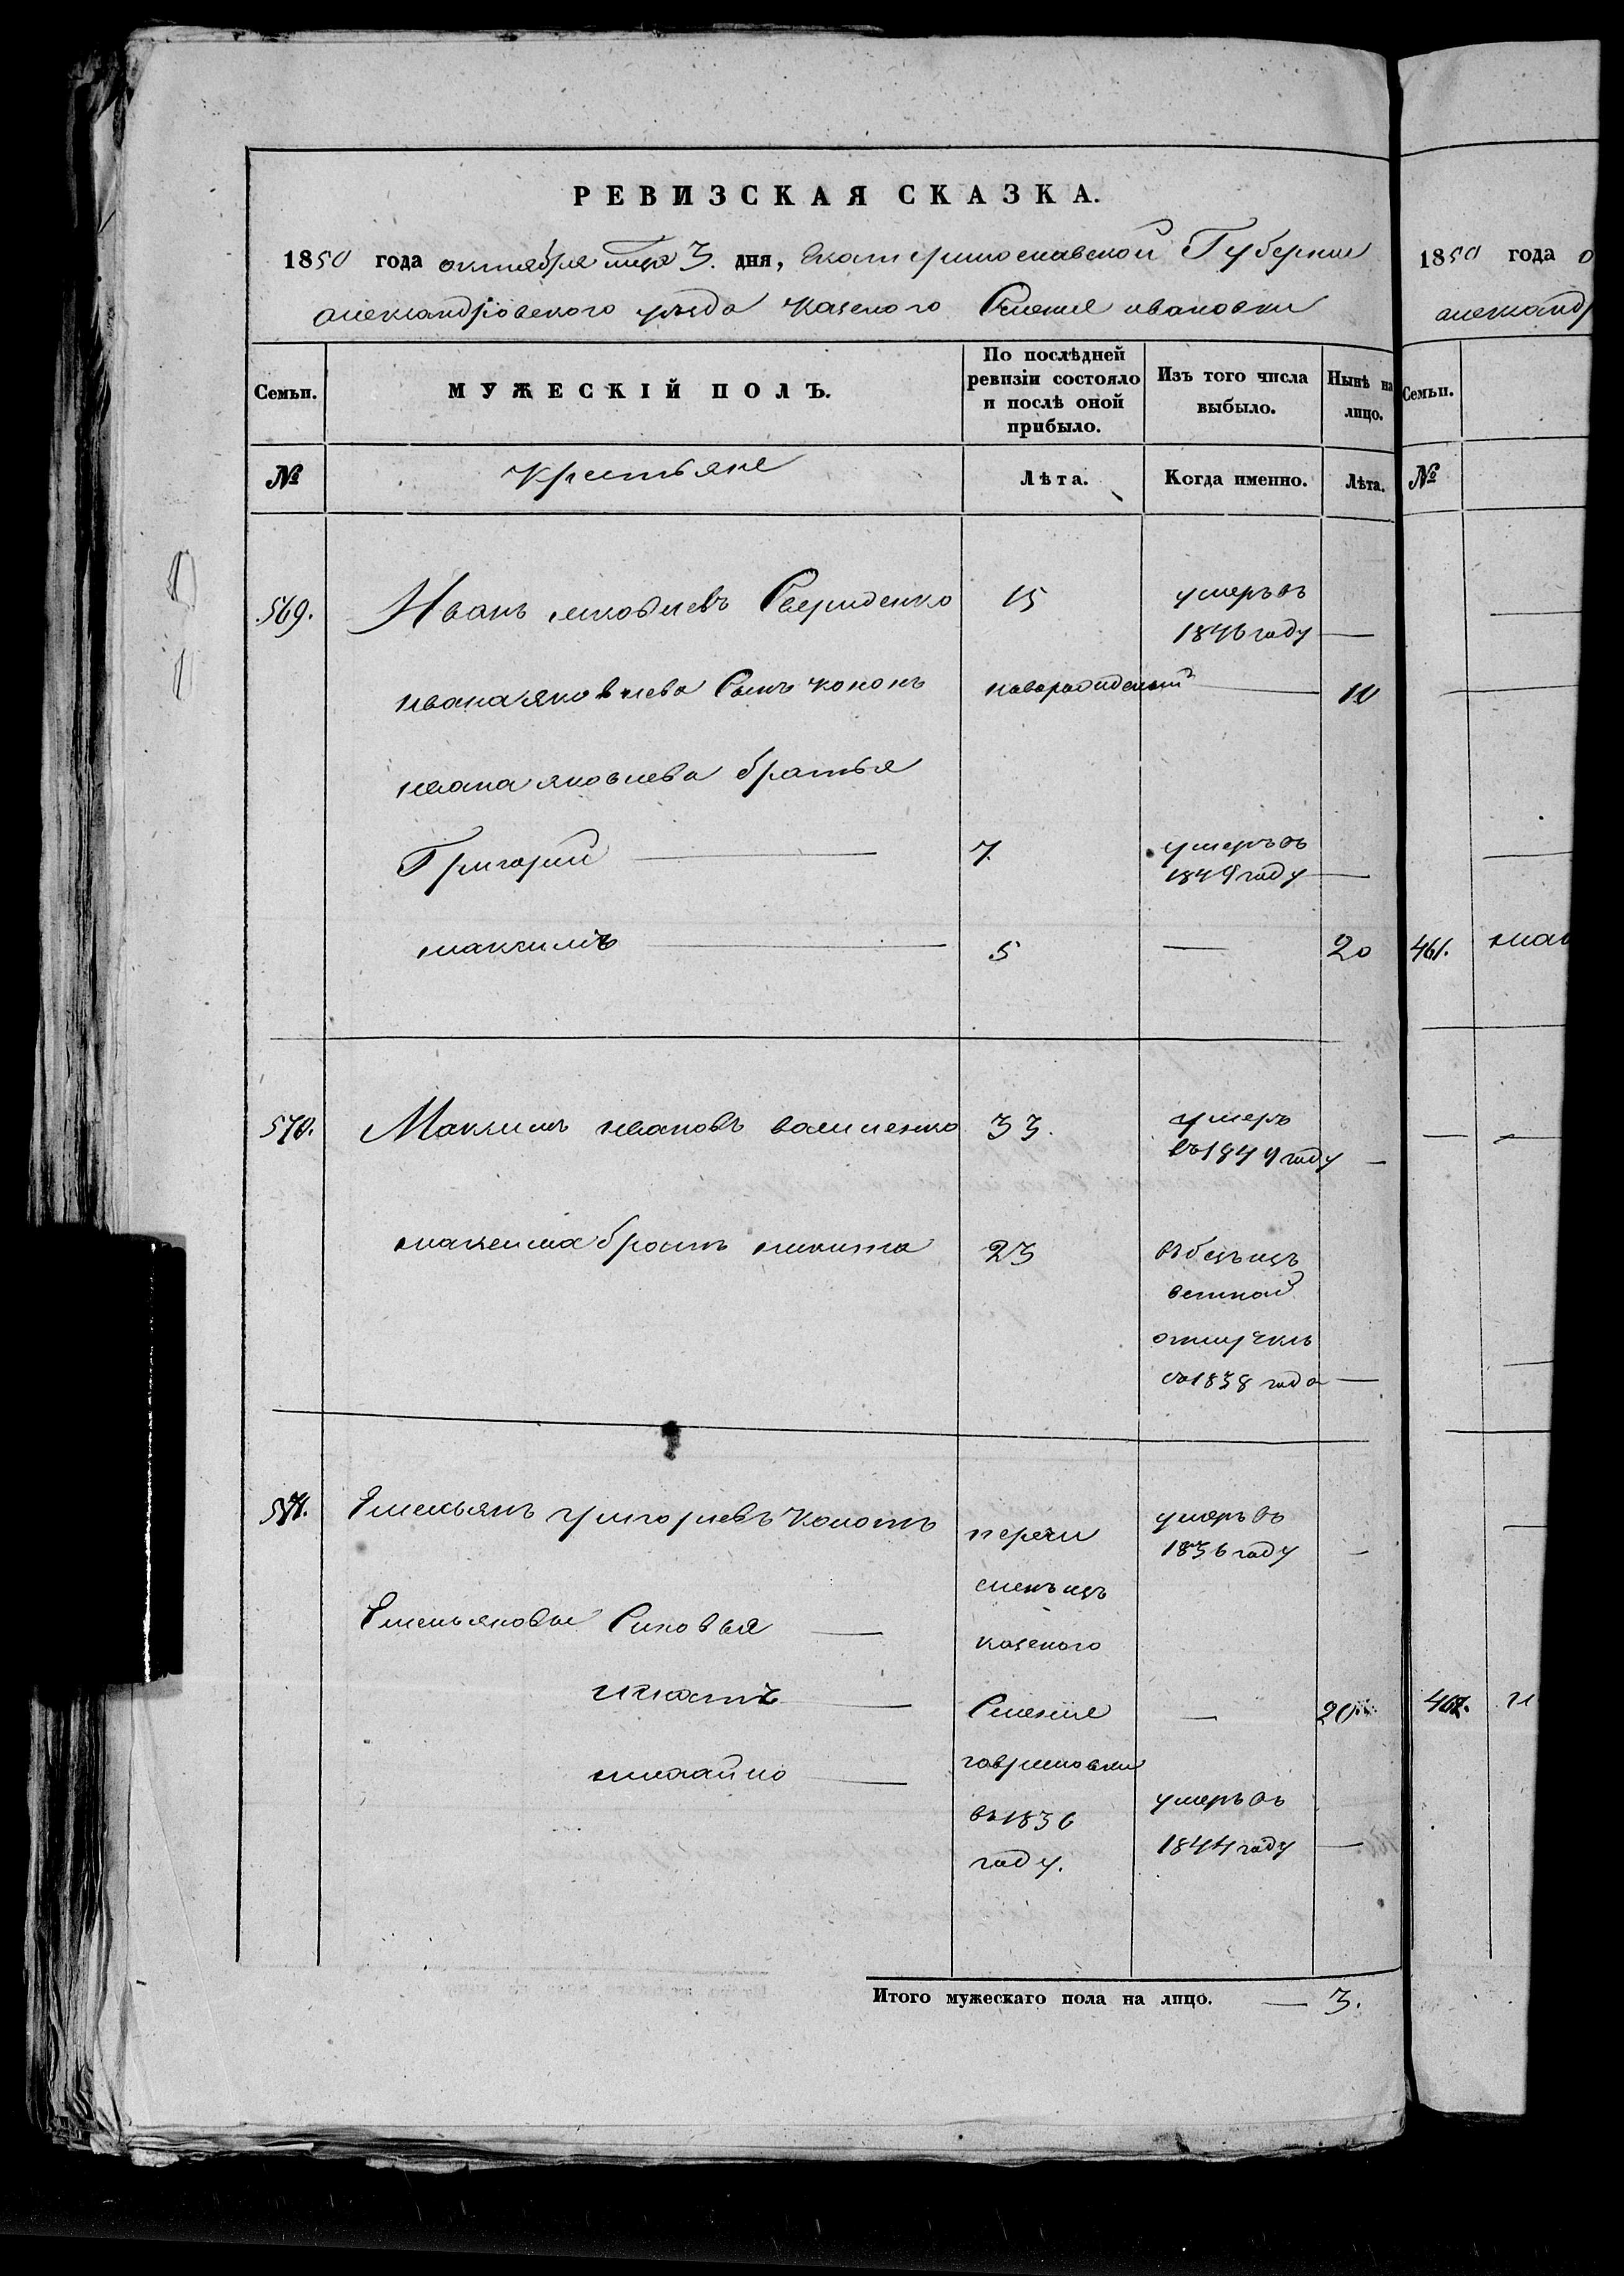 РЕВИЗСКАЯ СКАЗКА.
1850 года октября мца 3. дня, Екатеринославской Губернии
александровского уезда казеного Селения ивановки
Семьи. МУЖЕСКІЙ ПОЛЪ. По послѣдней ревизіи состояло и послѣ оной прибыло. Изъ того числа выбыло. Нынѣ на лицо.
№ крестьяне Лѣта. Когда именно. Лѣта.
569. Иванъ яковлевъ Свериденко 15 умеръ въ
1846 году —
ивана яковлева Сынъ кононъ новорожденный — 10
ивана яковлева братья
Григорий — 7. умеръ въ
1849 году —
максимъ — 5 — 20
570. Максимъ ивановъ 33. умеръ
въ 1849 году —
максима братъ никита 23 въ
отлучкъ
съ 1838 года —
571. Емельянъ григорьевъ колотъ перечи умеръ въ
1836 году —
сленъ изъ
Емельяновы Синовья — казеного
игнатъ — Селения — 20
михайло — гавриловки
въ 1836 умеръ въ
году. 1844 году —
Итого мужескаго пола на лицо. — 3.
1850 года о
александр
Семьи.
№
461.
462. и